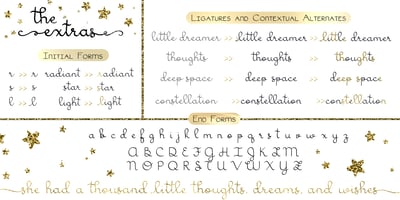 the
extras
Initial Forms
r >> r radiant >> radiant
s >> s star >> star
l >> l light >> light
Ligatures and Contextual Alternates
little dreamer >> little dreamer >> little dreamer
thoughts >> thoughts >> thoughts
deep space >> deep space >> deep space
constellation >> constellation >> constellation
End Forms
a b c d e f g h i j k l m n o p q r s t u v w x y z
A B C D E F G H I J K L M
N O P Q R S T U V W X Y Z
she had a thousand little thoughts, dreams, and wishes